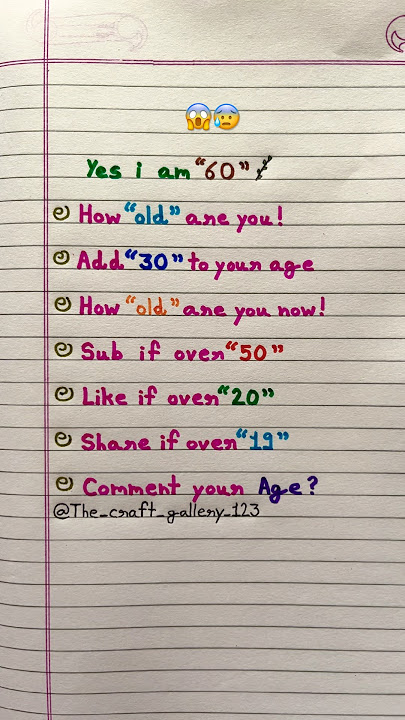 😱😰
Yes i am "60"
How "old" are you!
Add "30" to your age
How "old" are you now!
Sub if over "50"
Like if over "20"
Share if over "19"
Comment your Age?
@The_craft_gallery_123